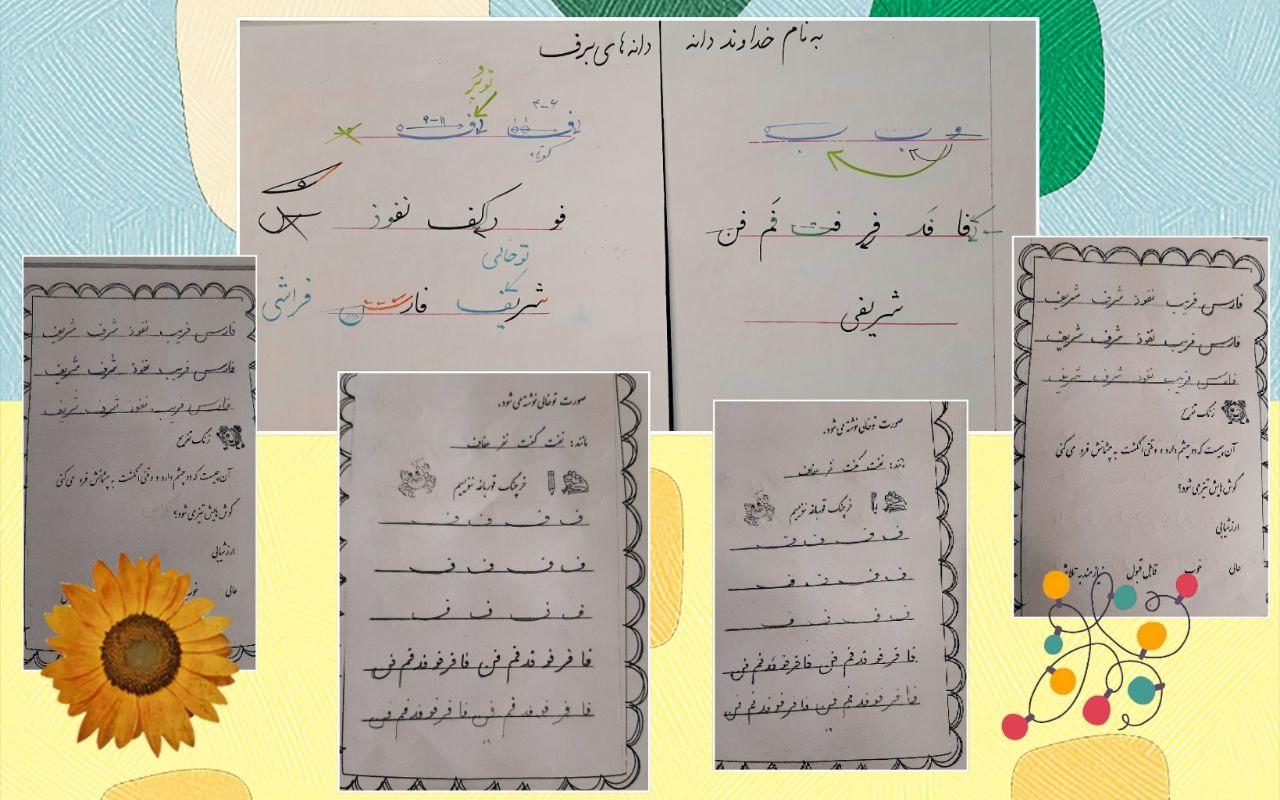 به نام خداوند دانه
دانه های برف
ف ب
۴-۶
۹-۱۱
کوتاه
فا فَد فر فت فَم فن
شریفی
فو رکف نفوذ
توخالی
شریف فارس فراشی
فارس فریب نفوذ شرف شریف
فارس فریب نفوذ شرف شریف
فارس فریب نفوذ شرف شریف
زنگ تفریح
آن چیست که دو چشم دارد و وقتی انگشت به چشمانش فرو می کنی
گوش هایش تیز می شود؟
ارزشیابی
عالی
صورت توخالی نوشته می شود.
مانند: نفت گفت نفر عفاف
خرچنگ قورباغه ننویسیم
ف ف ف ف
ف ف ف ف
ف ف ف ف
فا فر فو فد فم فن فا فر فو فد فم فن
فا فر فو فد فم فن فا فر فو فد فم فن
۵۹
صورت توخالی نوشته می شود.
مانند: نفت گفت نفر عفاف
خرچنگ قورباغه ننویسیم
ف ف ف ف
ف ف ف ف
ف ف ف ف
فا فر فو فد فم فن فا فر فو فد فم فن
فا فر فو فد فم فن فا فر فو فد فم فن
فارس فریب نفوذ شرف شریف
فارس فریب نفوذ شرف شریف
فارس فریب نفوذ شرف شریف
زنگ تفریح
آن چیست که دو چشم دارد و وقتی انگشت به چشمانش فرو می کنی
گوش هایش تیز می شود؟
ارزشیابی
عالی خوب قابل قبول نیازمند به تلاش